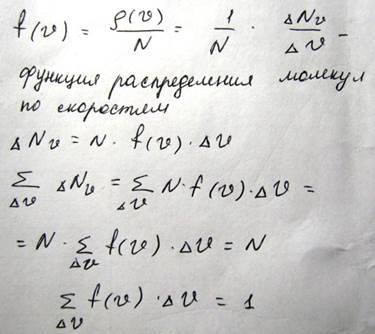 f(v) = ρ(v)/N = 1/N · ΔNv/Δv –
функция распределения молекул
по скоростям
ΔNv = N · f(v) · Δv
∑Δv ΔNv = ∑Δv N · f(v) · Δv =
= N · ∑Δv f(v) · Δv = N
∑Δv f(v) · Δv = 1